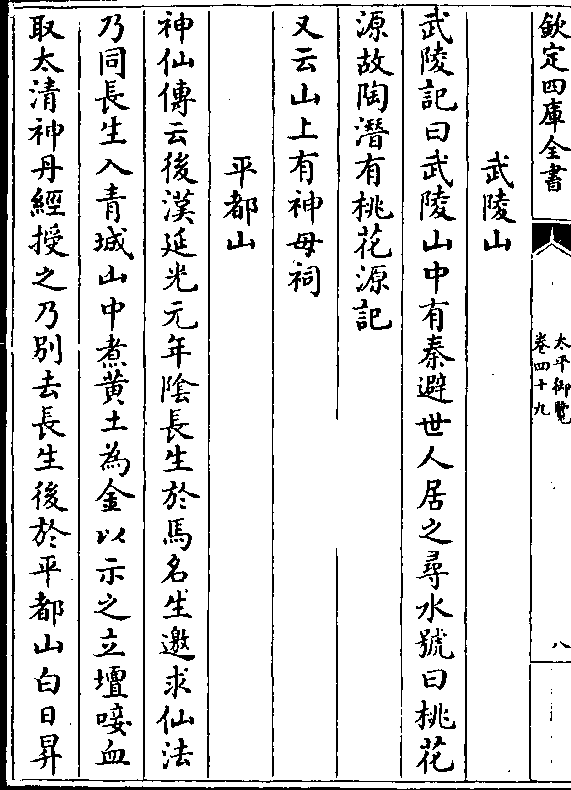 欽定四庫全書
太平御覽
卷四十九
八
武陵山
武陵記曰武陵山中有秦避世人居之尋水號曰桃花
源故陶潛有桃花源記
又云山上有神母祠
平都山
神仙傳云後漢延光元年陰長生於馬名生邀求仙法
乃同長生入青城山中煮黄土為金以示之立壇唼血
取太清神丹經授之乃别去長生後於平都山白日昇